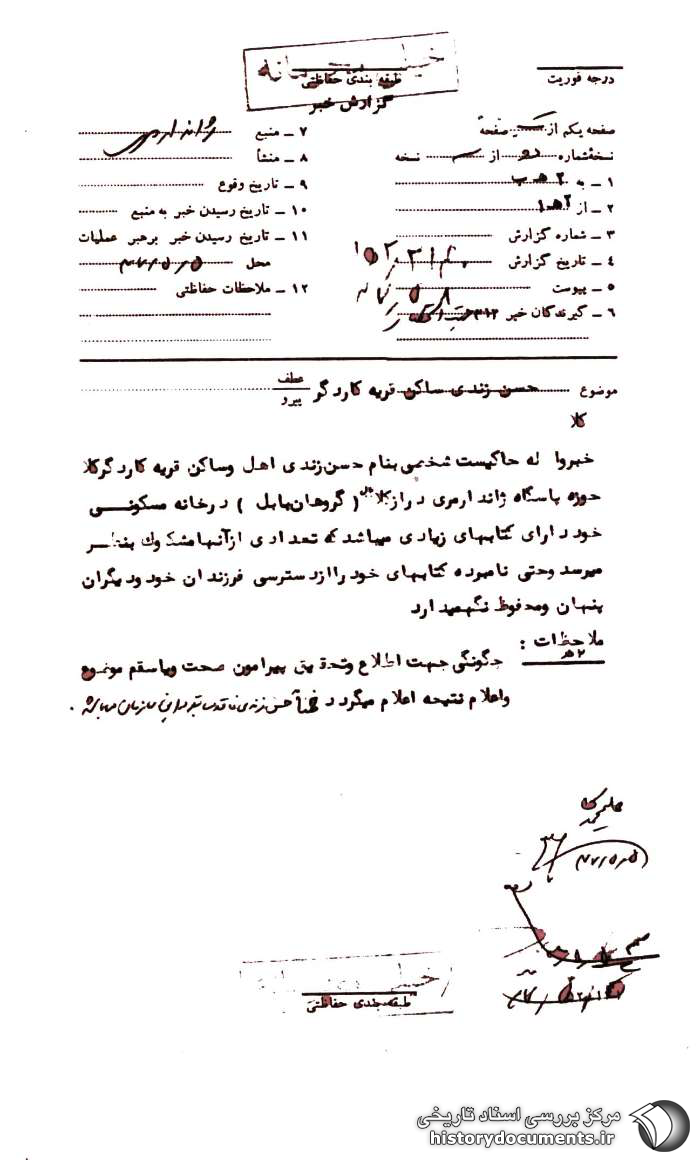 خیلی محرمانه
درجه فوریت
طبقه بندی حفاظتی
گزارش خبر
صفحه یکم از صفحه
نسخه‌شماره از نسخه
۱ ـ به ۲ هـ ب
۲ ـ از ۲هـ۱
۳ ـ شماره گزارش
۴ ـ تاریخ گزارش
۵ ـ پیوست
۶ ـ گیرندگان خبر ۳۱۲
۷ ـ منبع ژاندارمری
۸ ـ منشأ
۹ ـ تاریخ وقوع
۱۰ ـ تاریخ رسیدن خبر به منبع
۱۱ ـ تاریخ رسیدن خبر برهبر عملیات
محل ۴۷/۵/۵
۱۲ ـ ملاحظات حفاظتی
موضوع حسن زندی ساکن قریه کاردگر
کلا
عطف
پیرو
خبرواصله حاکیست شخصی بنام حسن زندی اهل وساکن قریه کاردگرکلا
حوزه پاسگاه ژاندارمری درازکلا (گروهان بابل) درخانه مسکونی
خود دارای کتابهای زیادی میباشد که تعدادی ازآنها مشکوک بنظر
میرسد وحتی نامبرده کتابهای خود را از دسترسی فرزندان خود ودیگران
پنهان ومحفوظ نگهمیدارد
ملاحظات :
۲هـ
چگونگی جهت اطلاع وتحقیق پیرامون صحت ویاسقم موضوع
واعلام نتیجه اعلام میگردد ضمناً حسن زندی فاقد سابقه در این سازمان میباشد .
۴۷/۵/۵
خیلی محرمانه
طبقه‌بندی حفاظتی
مرکز بررسی اسناد تاریخی
historydocuments.ir